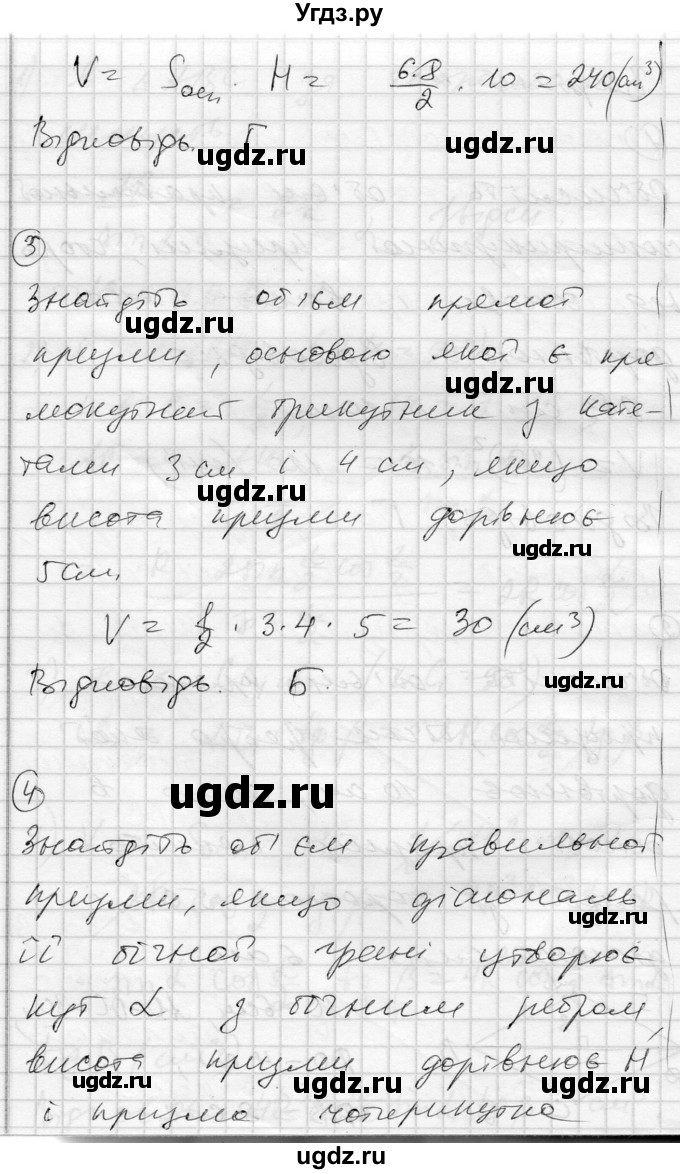 Угдз.ру
V = Sосн · H = 6·8/2 · 10 = 240 (см³)
Відповідь. Г
ugdz.ru ugdz.ru
3
Знайдіть об'єм прямої
ugdz.ru
призми, основою якої є пря
ugdz.ru
мокутний трикутник з кате-
тами 3 см і 4 см, якщо
ugdz.ru
висота призми дорівнює
ugdz.ru
5 см.
V = 1/2 · 3 · 4 · 5 = 30 (см³)
Відповідь. Б.
ugdz.ru
4
ugdz.ru
Знайдіть об'єм правильної
призми, якщо діагональ
ugdz.ru
її бічної грані утворює
кут α з бічним ребром,
висота призми дорівнює H
ugdz.ru ugdz.ru ugdz.ru
і призма чотирикутна